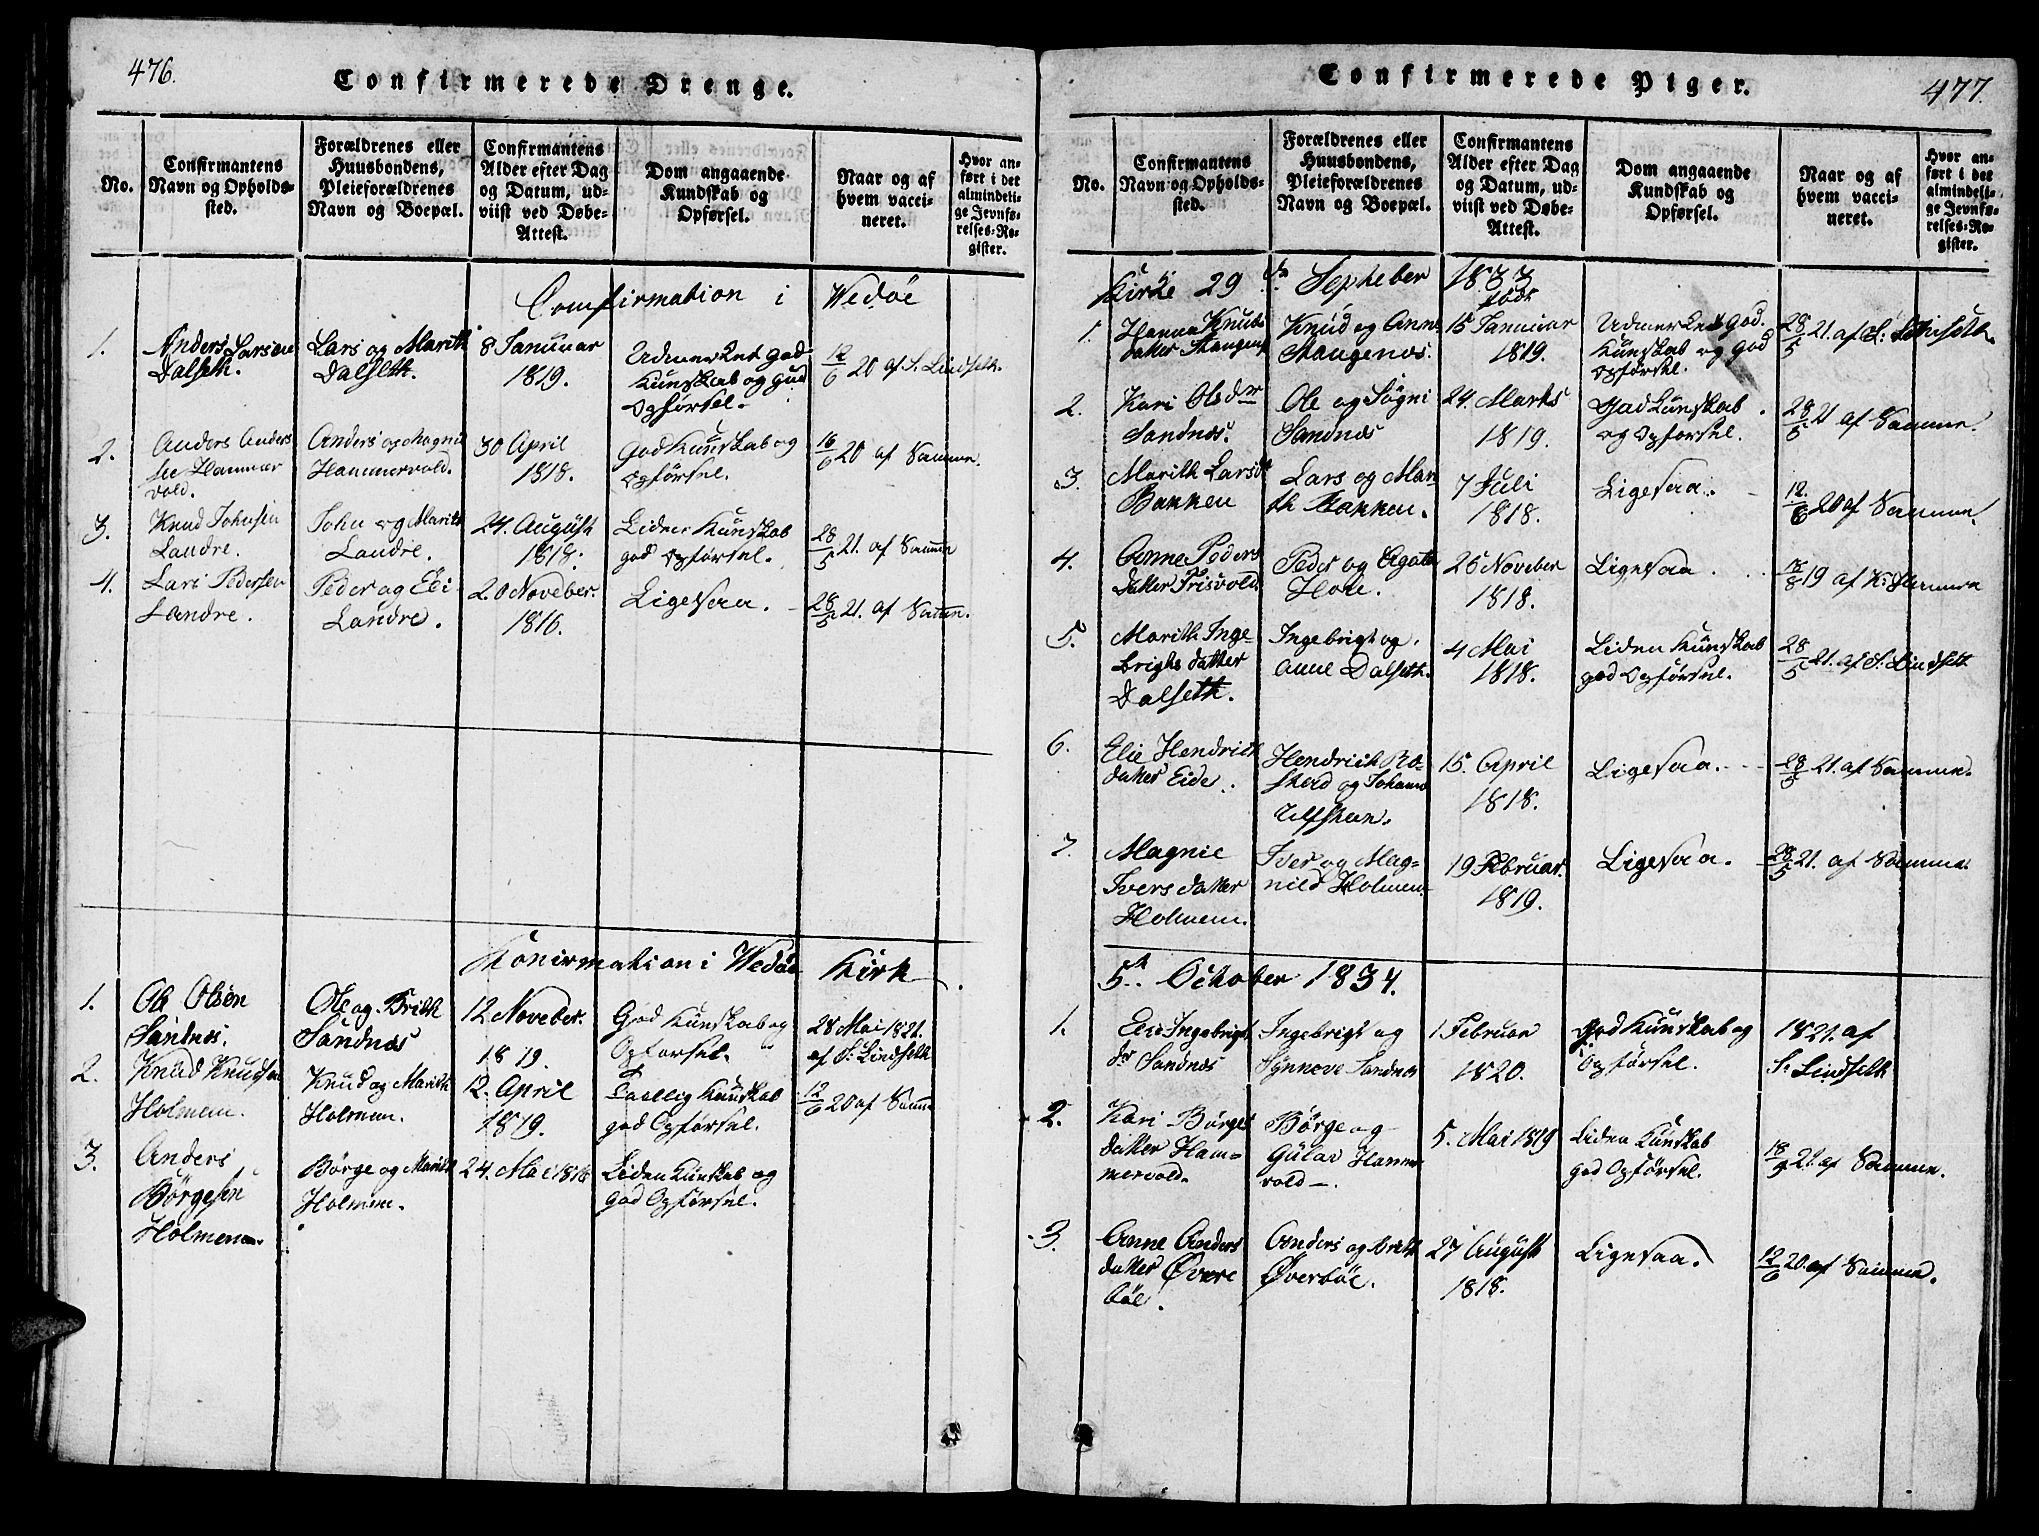 476.
Confirmerede Drenge.
No.
Confirmantens
Navn og Opholds-
sted.
Forældrenes eller
Huusbondens,
Pleieforældrenes
Navn og Boepæl.
Confirmantens
Alder efter Dag
og Datum, ud-
viist ved Døbe-
Attest.
Dom angaaende
Kundskab og
Opførsel.
Naar og af
hvem vacci-
neret.
Hvor an-
ført i det
almindeli-
ge Jevnfø-
relses-Re-
gister.
Comfirmation i Wedöe
1.
Anders Larsen
Dalseth.
Lars og Marith
Dalseth.
8 Januar
1819.
Udmerket god
Kunskab og god
Opförsel.
12/6 20 af S. Lindseth.
2.
Anders Anders
sen Hammer
vold.
Anders og Magnil
Hammervold.
30 April
1818.
God Kunskab og
Opförsel.
16/6 20 af Samme.
3.
Knud Johnsen
Landre.
John og Marith
Landre.
24. August
1818.
Liden Kunskab
god Opförsel.
28/5 21. af Samme
4.
Lars Pedersen
Landre.
Peder og Eli
Landre.
20 Noveber.
1816.
Ligesaa.
28/5 21. af Samm.
Konirmation i Wedöe Kirk
1.
Ole Olsen
Sandnes.
Ole og Brith
Sandnæs
12 Noveber.
1819.
God Kunskab og
Opförsel.
28 Mai 1821.
af S. Lindseth
2.
Knud Knudsen
Holmem.
Knud og Marith
Holmem.
12. April
1819.
Taallig Kunskab
god Opförsel.
12/6 20 af Samme
3.
Anders
Börgesen
Holmem.
Börge og Marith
Holmem.
24. Mai 1818
Liden Kunskab og
God Opförsel.
Confirmerede Piger.
477.
No.
Confirmantens
Navn og Opholds-
sted.
Forældrenes eller
Huusbondens,
Pleieforældrenes
Navn og Boepæl.
Confirmantens
Alder efter Dag
og Datum, ud-
viist ved Døbe-
Attest.
Dom angaaende
Kundskab og
Opførsel.
Naar og af
hvem vacci-
neret.
Hvor an-
ført i det
almindeli-
ge Jevnfø-
relses-Re-
gister.
Kirke 29 de Septeber 1833
födt
1.
Hanna Knuds
dater Stangenes
Knud og Anne
Stangenæs.
15 Januar
1819.
Udmerket god.
Kunskab og god
Opförsel.
28/5 21. af S. Lindseth.
2.
Kari Olsdr
Sandnes.
Ole og Sögni
Sandnæs
24. Marts
1819.
God Kunskab
og Opförsel.
28/5 21 af Samme.
3.
Marith Larsdt
Bakken
Lars og Mari
th Bakken.
7 Juli
1818.
Ligesaa.
12/6 20 af Samme.
4.
Anne Peders
dater Trisvold.
Peder og Agate
Hole.
26 Noveber
1818.
Ligesaa.
19 af
5.
Marith Inge-
brigts datter
Dalseth.
Ingebrigt og
Anne Dalseth.
4 Mai
1818.
Liden Kunskab
god Opförsel.
28/5 21. af S. Lindseth
6.
Elie Hendrich
dater Eide.
Hendrich Ro-
stad og Johanna
Ulfsten.
15. April
1818.
Ligesaa.
28/5 21. af Samme.
7.
Magnie
Ivers dater
Holmem.
Iver og Mag-
nild Holmem.
19 Februar.
1819.
Ligesaa.
28/5 21. af Samme.
5te October 1834.
1.
Eli Ingebrigt
dr Sandnes
Ingebrigt og
Synneve Sandnes
1. Februar
1820.
God Kunskab og
Opförsel.
1821. af
S. Lindseth
2.
Kari Börges
dater Ham-
mervold.
Börge og
Gulav Hammer
vold.
5. Mai 1819
Liden Kunskab
god Opförsel.
18/9 21. af Samme.
3.
Anne Anders
dater Övere
böe.
Anders og Brith
Överböe.
27 August
1818.
Ligesaa.
12/6 20. af Samme.